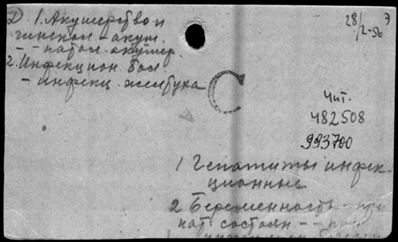 Д. 1. Акушерство и
гинекол - акуш.
- - патол. акушер.
2. Инфекцион. бол.
- инфекц.
28/2-56
Э
С
Чит.
482508
993700
1 Гепатиты инфек-
ционные
2 Беременность - при
пат. состоян - -